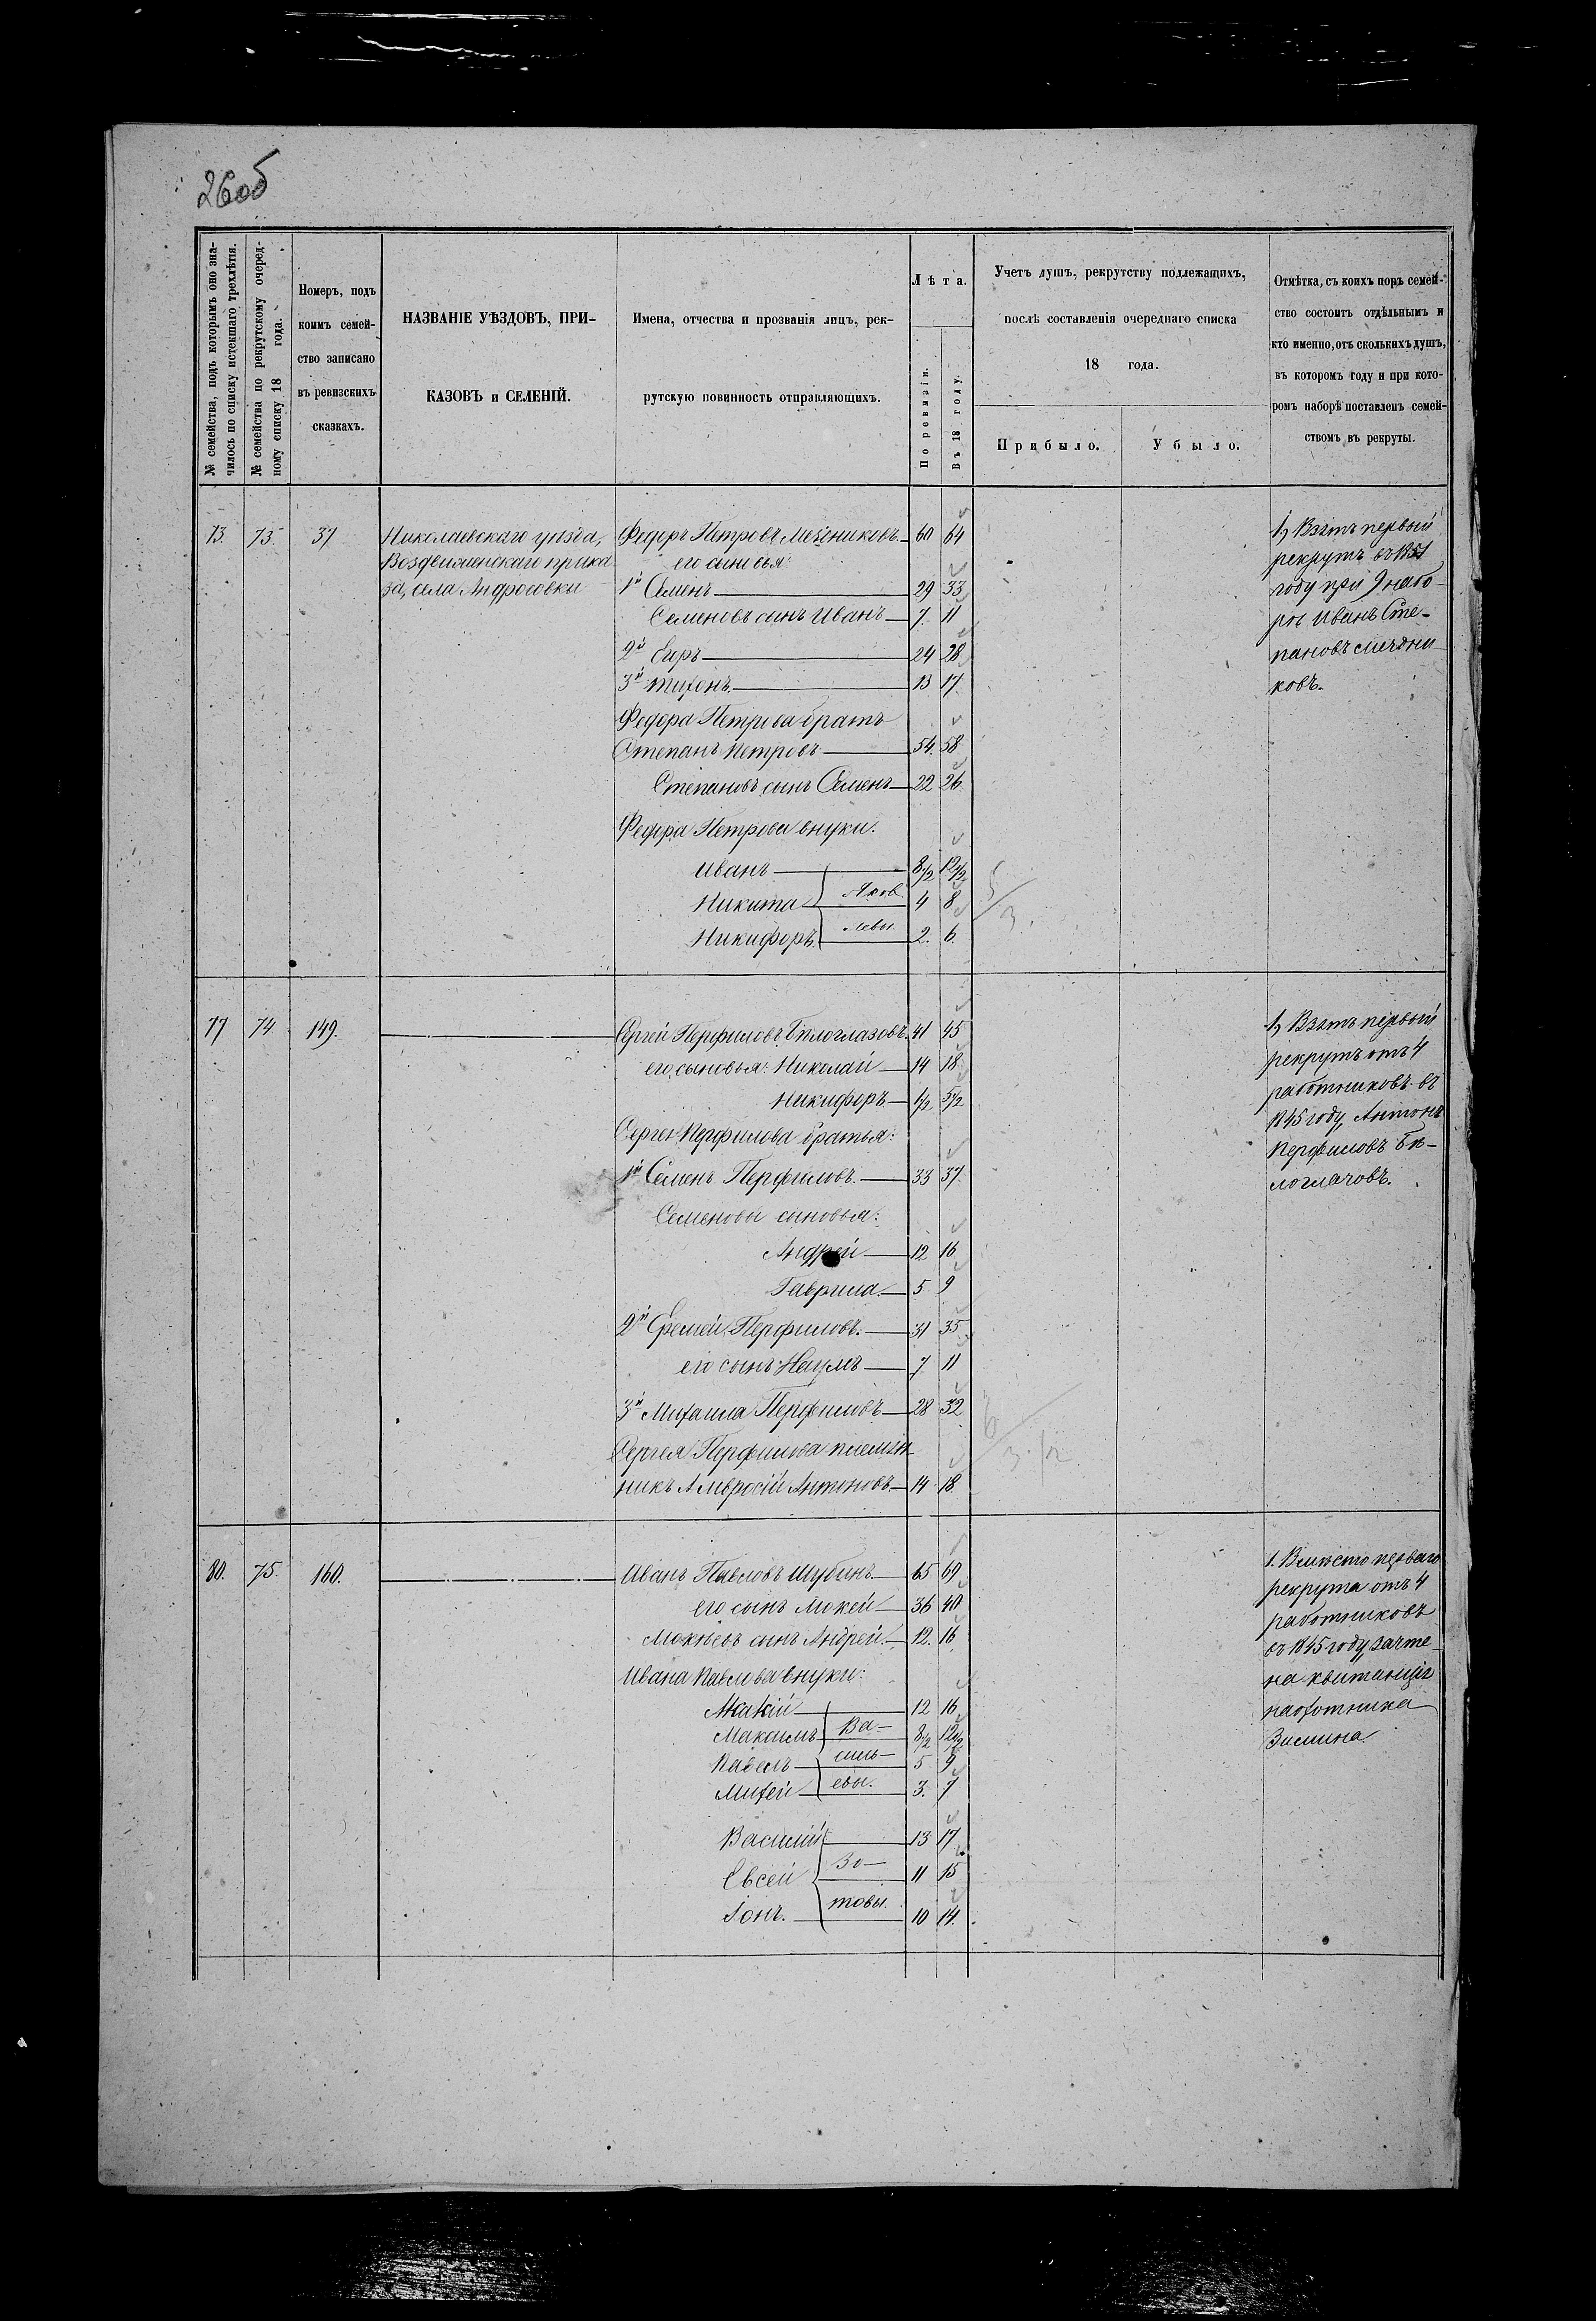 26об
№ семейства, подъ которымъ оно зна-
чилось по списку истекшаго трехлѣтія.
№ семейства по рекрутскому очеред-
ному списку 18 года.
Номеръ, подъ
коимъ семей-
ство записано
въ ревизскихъ
сказкахъ.
НАЗВАНІЕ УѢЗДОВЪ, ПРИ-
КАЗОВЪ и СЕЛЕНІЙ.
Имена, отчества и прозванія лицъ, рек-
рутскую повинность отправляющихъ.
Лѣта.
По ревизіи.
Въ 18 году.
Учетъ душъ, рекрутству подлежащихъ,
послѣ составленія очереднаго списка
18 года.
Прибыло.
Убыло.
Отмѣтка, съ коихъ поръ семей-
ство состоитъ отдѣльнымъ и
кто именно, отъ сколькихъ душъ,
въ которомъ году и при кото-
ромъ наборѣ поставленъ семей-
ствомъ въ рекруты.
73. 73. 37 Николаевскаго уѣзда,
Воздвиженскаго прика
за, села Андросовки
Федоръ Петровъ Мечениковъ 60 64
его сыновья:
1й Семенъ 29 33
Семеновъ сынъ Иванъ 7. 11
2й Сиръ 24 28
3й Тихонъ. 13 17.
Федора Петрова братъ
Степанъ Петровъ 54. 58
Степановъ сынъ Семенъ 22 26
Федора Петрова внуки.
Иванъ 8½ 12½
Никита Яков 4 8
Никифоръ. левы 2. 6.
5/3.
1, Взятъ первый
рекрутъ въ 1851
году при 9 набо-
рѣ Иванъ Сте-
пановъ
77 74 149.
Сергей Перфиловъ Бѣлоглазовъ 41 45
его сыновья: Николай 14 18
Никифоръ 1½ 5½
Сергея Перфилова братья:
1й Семенъ Перфиловъ. 33 37.
Семеновы сыновья:
Андрей 12 16
Гаврила. 5 9
2й Еремей Перфиловъ. 31 35
его сынъ Наумъ 7 11
3й Михаила Перфиловъ 28 32
Сергея Перфилова племян
никъ Амвросій Антоновъ 14 18
1, Взятъ первый
рекрутъ отъ 4
работниковъ въ
1845 году, Антонъ
Перфиловъ Бѣ-
логлазовъ.
80. 75. 160.
Иванъ Павловъ Шубинъ 65 69
его сынъ Мокей 36 40
Мокѣевъ сынъ Андрей. 12. 16
Ивана Павлова внуки:
12 16
Максимъ Ва- 8½ 12½
Павелъ силь- 5 9
Михей евы. 3. 7
Василій 13 17
Евсей Зо- 11 15
Іонъ. товы. 10 14.
1. Вмѣсто перваго
рекрута отъ 4
работниковъ
въ 1845 году, зачте-
на квитанція
на охотника
Зимина.